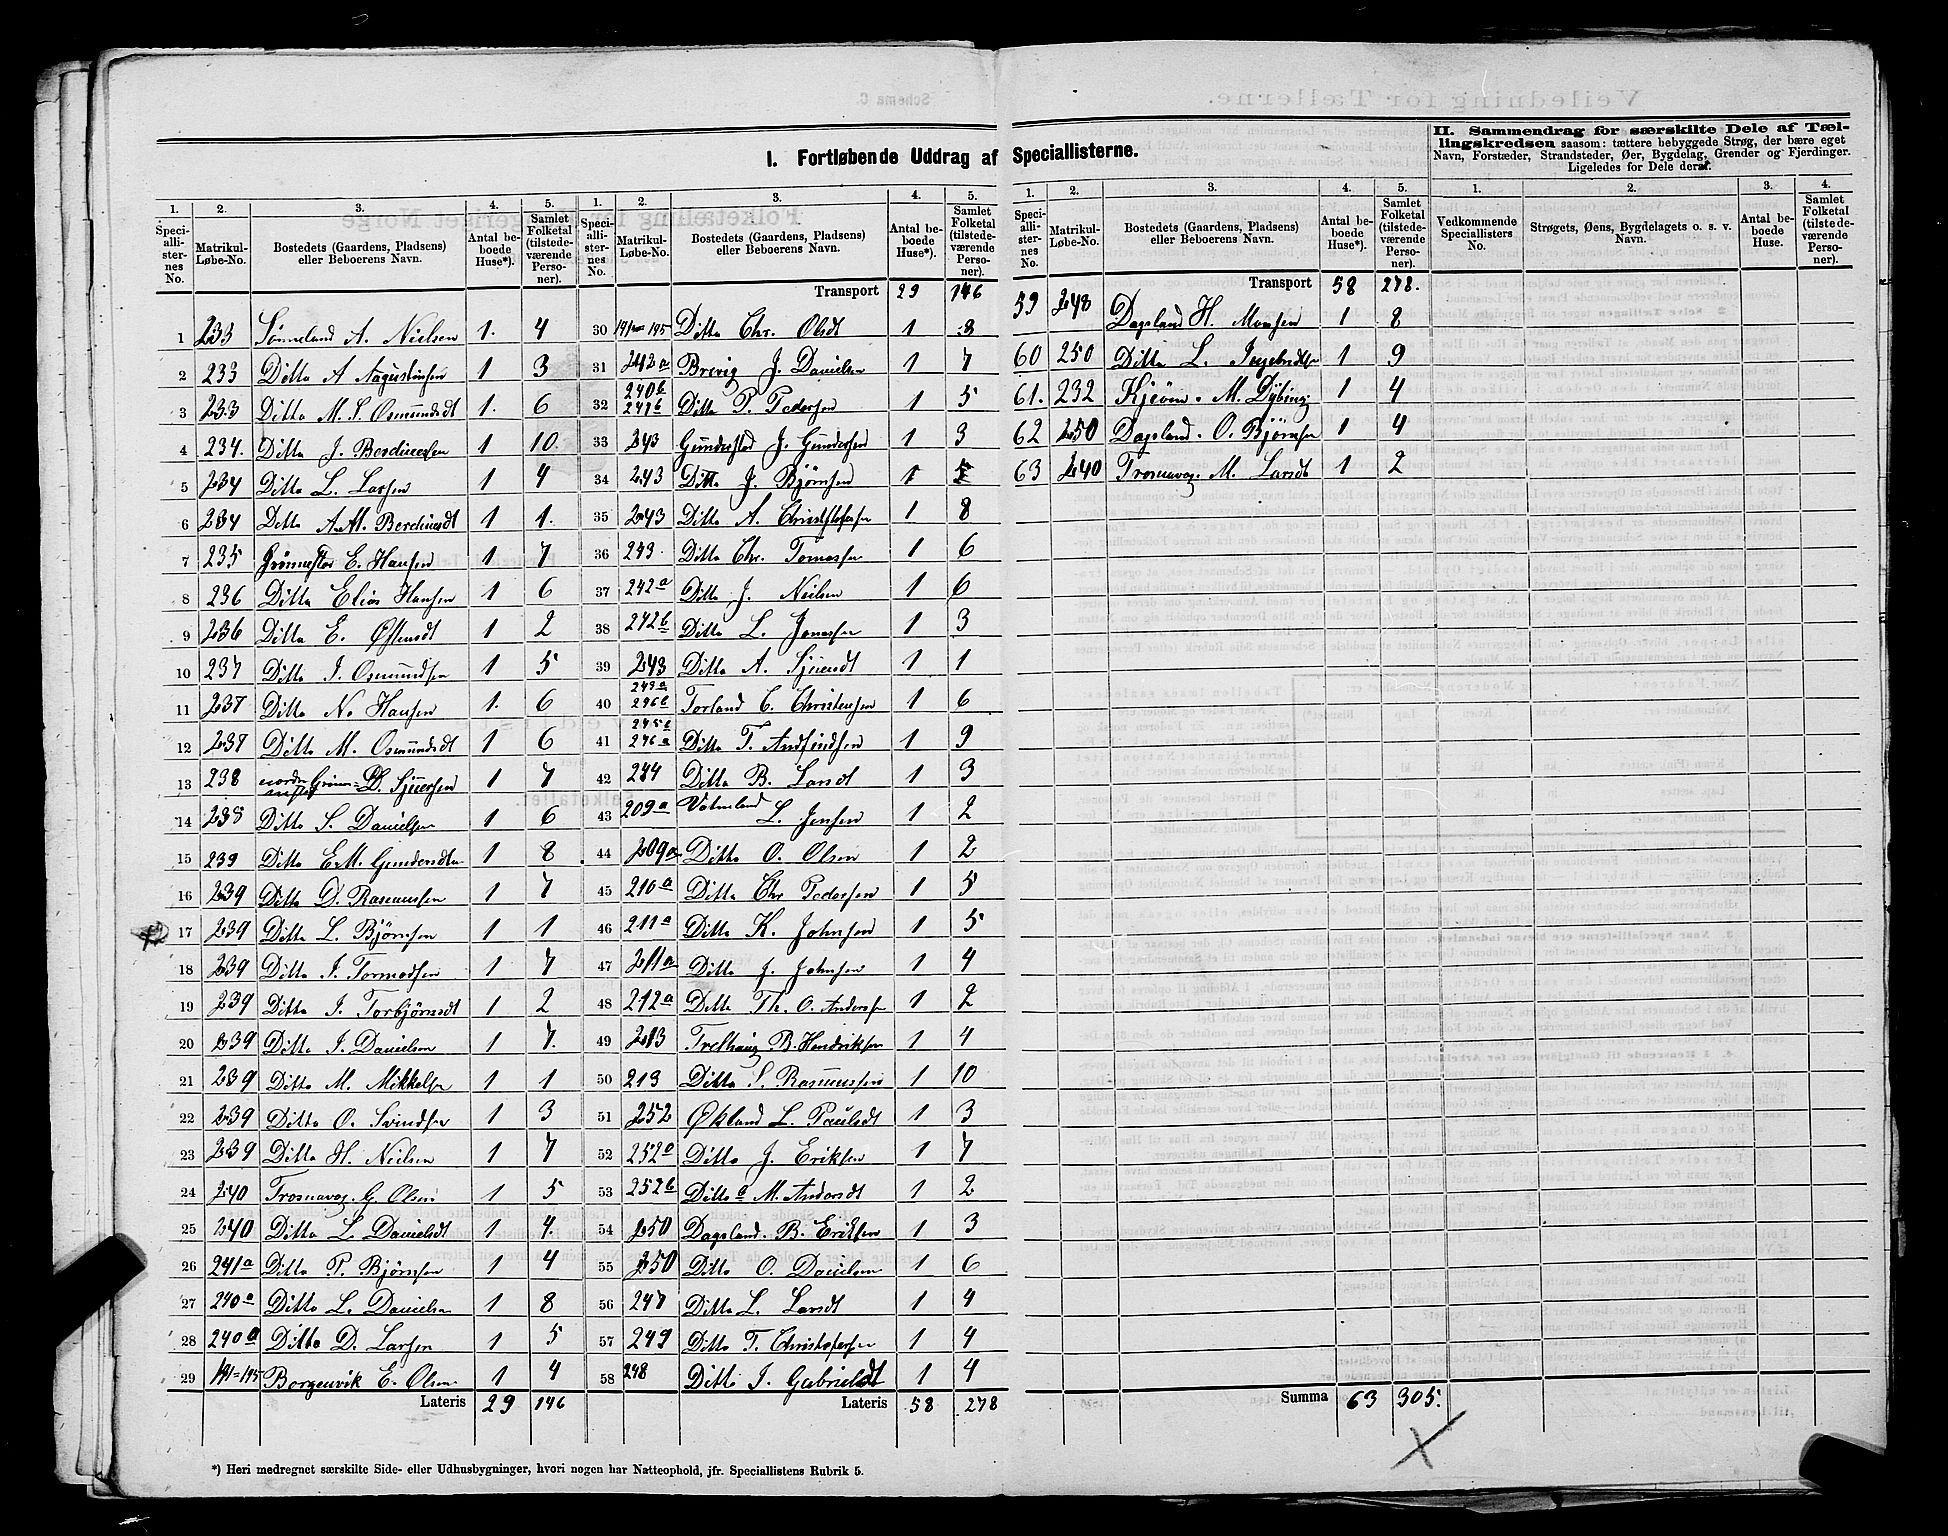 I. Fortløbende Uddrag af Speciallisterne.
1. 2. 3. 4. 5. 1. 2. 3. 4. 5.
Speciallisternes No. Matrikul-Løbe-No. Bostedets (Gaardens, Pladsens) eller Beboerens Navn. Antal beboede Huse*). Samlet Folketal (tilstedeværende Personer). Speciallisternes No. Matrikul-Løbe-No. Bostedets (Gaardens, Pladsens) eller Beboerens Navn. Antal beboede Huse*). Samlet Folketal (tilstedeværende Personer).
1 233 Sønneland A. Nielsen 1. 4
2 233 Ditto A Aagustinsen 1 3
3 233 Ditto M. S. Osmundsdt 1. 6
4 234. Ditto J. Berdinesen 1 10.
5 234 Ditto L. Larsen 1 4
6 234 Ditto A. M. Berdinesdt 1 1.
7 235 Grønnestøl E. Hansen 1 7
8 236 Ditto Elias Hansen 1 6
9 236 Ditto E. Øffensdt 1 2
10 237 Ditto J. Osmundsen 1 5
11 237 Ditto N. Hansen 1. 6
12 237 Ditto M. Osmundsdt 1 6
13 238 D. Sjursen 1 7
14 238 Ditto S. Danielsen 1 6
15 239 Ditto E. M. Gundersdtr 1 8
16 239 Ditto D. Rasmussen 1 7
17 239 Ditto L. Bjørnsen 1 1
18 239 Ditto J. Tormodsen 1 7
19 239 Ditto J. Torbjørnsdt 1 2
20 239 Ditto J. Danielsen 1 7.
21 239 Ditto M. Mikkelsen 1 1
22 239 Ditto O. Svindsen 1 3
23 239 Ditto H. Nielsen 1 7
24 240 Trosnavag. G. Olsen 1 5
25 240 Ditto L. Danielsdt 1 4.
26 241a Ditto P. Bjørnsen 1 4
27 240a Ditto L. Danielsen 1 8
28 240a Ditto D. Larsen 1 5
29 191=195 Borgenvik E. Olsen 1 4
Lateris 29 146
Transport 29 146
30 191=195 Ditto Chr. Olsdt 1 8
31 242a Brevig J. Danielsen 1 7
32 240b 241b Ditto P. Pedersen 1 5
33 243 Gunderstad J. Gundersen 1 3
34 243 Ditto J. Bjørnsen 1
35 243 Ditto A. Christofersen 1. 8
36 243. Ditto Chr. Tomassen 1 6
37 242a Ditto J. Neilsen 1 6
38 242b Ditto L. Jonassen 1 3
39 243 Ditto A. Sjursdt 1 1
40 246b Torland C. Christensen 1 6
41 245b 246a Ditto T. Andfindsen 1 9
42 244 Ditto B. Larsdt 1 3
43 209a Vatneland L. Jensen 1 2
44 209a Ditto O. Olsen 1 2
45 210a Ditto Chr Pedersen 1 5
46 211a Ditto K. Johnsen 1 5
47 211a Ditto J. Johnsen 1 4
48 212a Ditto Th. O. Andersen 1 2
49 213 Trelhaug B. Hendriksen 1 4
50 213 Ditto S. Rasmussen 1 10
51 252 Økland L. Paulsdt 1 3
52 252a Ditto J. Eriksen 1 7
53 252b Ditto M. Andersdt 1 2
54 250 Dagsland. B. Eriksen 1 3
55 250 Ditto O. Danielsen 1 6
56 247 Ditto L. Larsdt 1 4
57 249 Ditto T. Christofersen 1 4
58 248 Ditto J. Gabrielsdt 1 4
Lateris 58 278
*) Heri medregnet særskilte Side- eller Udhusbygninger, hvori nogen har Natteophold, jfr. Speciallistens Rubrik 5.
1. 2. 3. 4. 5.
Speciallisternes No. Matrikul-Løbe-No. Bostedets (Gaardens, Pladsens) eller Beboerens Navn. Antal beboede Huse*). Samlet Folketal (tilstedeværende Personer).
Transport 58 278.
59 248 Dagsland H. Monsen 1 8
60 250 Ditto L. Ingebretsen 1 9
61. 232 Kjevin. M. Dybing 1 4
62 250 Dagsland. O. Bjørnsen 1 4
63 240 Trosnavag. M. Larsdt 1 2
Summa 63 305.
II. Sammendrag for særskilte Dele af Tællingskredsen saasom: tættere bebyggede Strøg, der bære eget Navn, Forstæder, Strandsteder, Øer, Bygdelag, Grender og Fjerdinger. Ligeledes for Dele deraf.
1. 2. 3. 4.
Vedkommende Speciallisters No. Strøgets, Øens, Bygdelagets o. s. v. Navn. Antal beboede Huse. Samlet Folketal (tilstedeværende Personer).